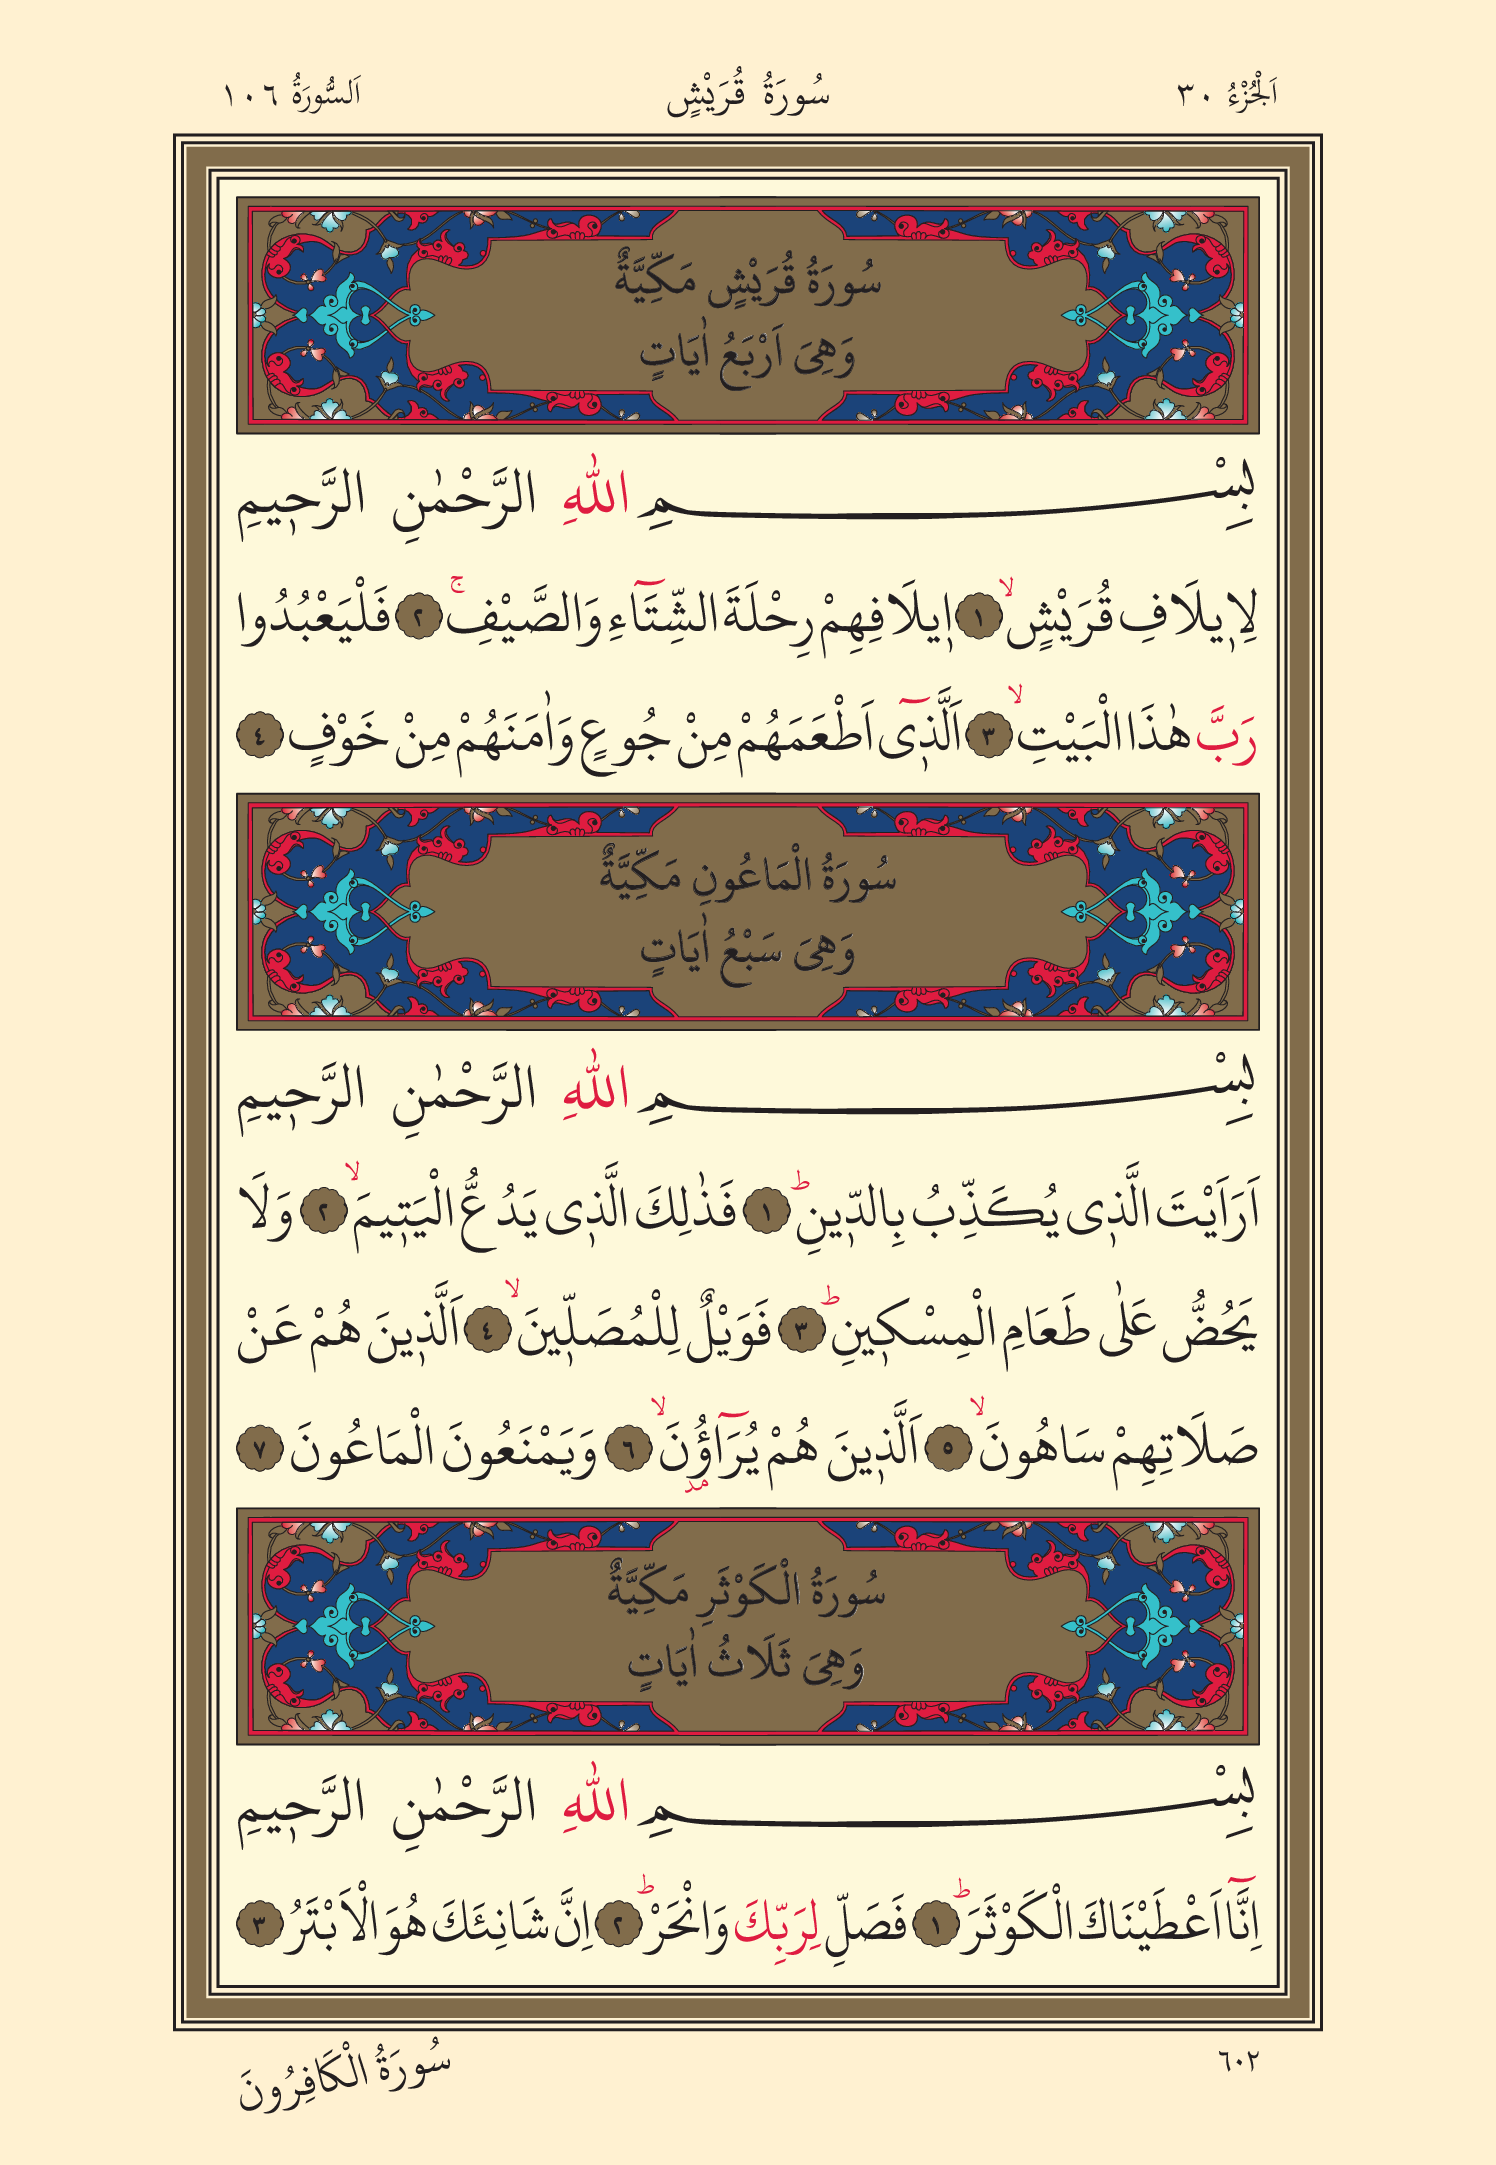 اَلْجُزْءُ ٣٠ سُورَةُ قُرَيْشٍ اَلسُّورَةُ ١٠٦
سُورَةُ قُرَيْشٍ مَكِّيَّةٌ
وَهِىَ اَرْبَعُ اٰيَاتٍ
بِسْمِ اللّٰهِ الرَّحْمٰنِ الرَّح۪يمِ
لِا۪يلَافِ قُرَيْشٍۙ ١ ا۪يلَافِهِمْ رِحْلَةَ الشِّتَٓاءِ وَالصَّيْفِۚ ٢ فَلْيَعْبُدُوا
رَبَّ هٰذَا الْبَيْتِۙ ٣ اَلَّذ۪ٓى اَطْعَمَهُمْ مِنْ جُوعٍ وَاٰمَنَهُمْ مِنْ خَوْفٍ ٤
سُورَةُ الْمَاعُونِ مَكِّيَّةٌ
وَهِىَ سَبْعُ اٰيَاتٍ
بِسْمِ اللّٰهِ الرَّحْمٰنِ الرَّح۪يمِ
اَرَاَيْتَ الَّذ۪ى يُكَذِّبُ بِالدّ۪ينِۜ ١ فَذٰلِكَ الَّذ۪ى يَدُعُّ الْيَت۪يمَۙ ٢ وَلَا
يَحُضُّ عَلٰى طَعَامِ الْمِسْك۪ينِۜ ٣ فَوَيْلٌ لِلْمُصَلّ۪ينَۙ ٤ اَلَّذ۪ينَ هُمْ عَنْ
صَلَاتِهِمْ سَاهُونَۙ ٥ اَلَّذ۪ينَ هُمْ يُرَٓاؤُ۫نَۙ ٦ وَيَمْنَعُونَ الْمَاعُونَ ٧
مد
سُورَةُ الْكَوْثَرِ مَكِّيَّةٌ
وَهِىَ ثَلَاثُ اٰيَاتٍ
بِسْمِ اللّٰهِ الرَّحْمٰنِ الرَّح۪يمِ
اِنَّٓا اَعْطَيْنَاكَ الْكَوْثَرَۜ ١ فَصَلِّ لِرَبِّكَ وَانْحَرْۜ ٢ اِنَّ شَانِئَكَ هُوَ الْاَبْتَرُ ٣
٦٠٢ سُورَةُ الْكَافِرُونَ